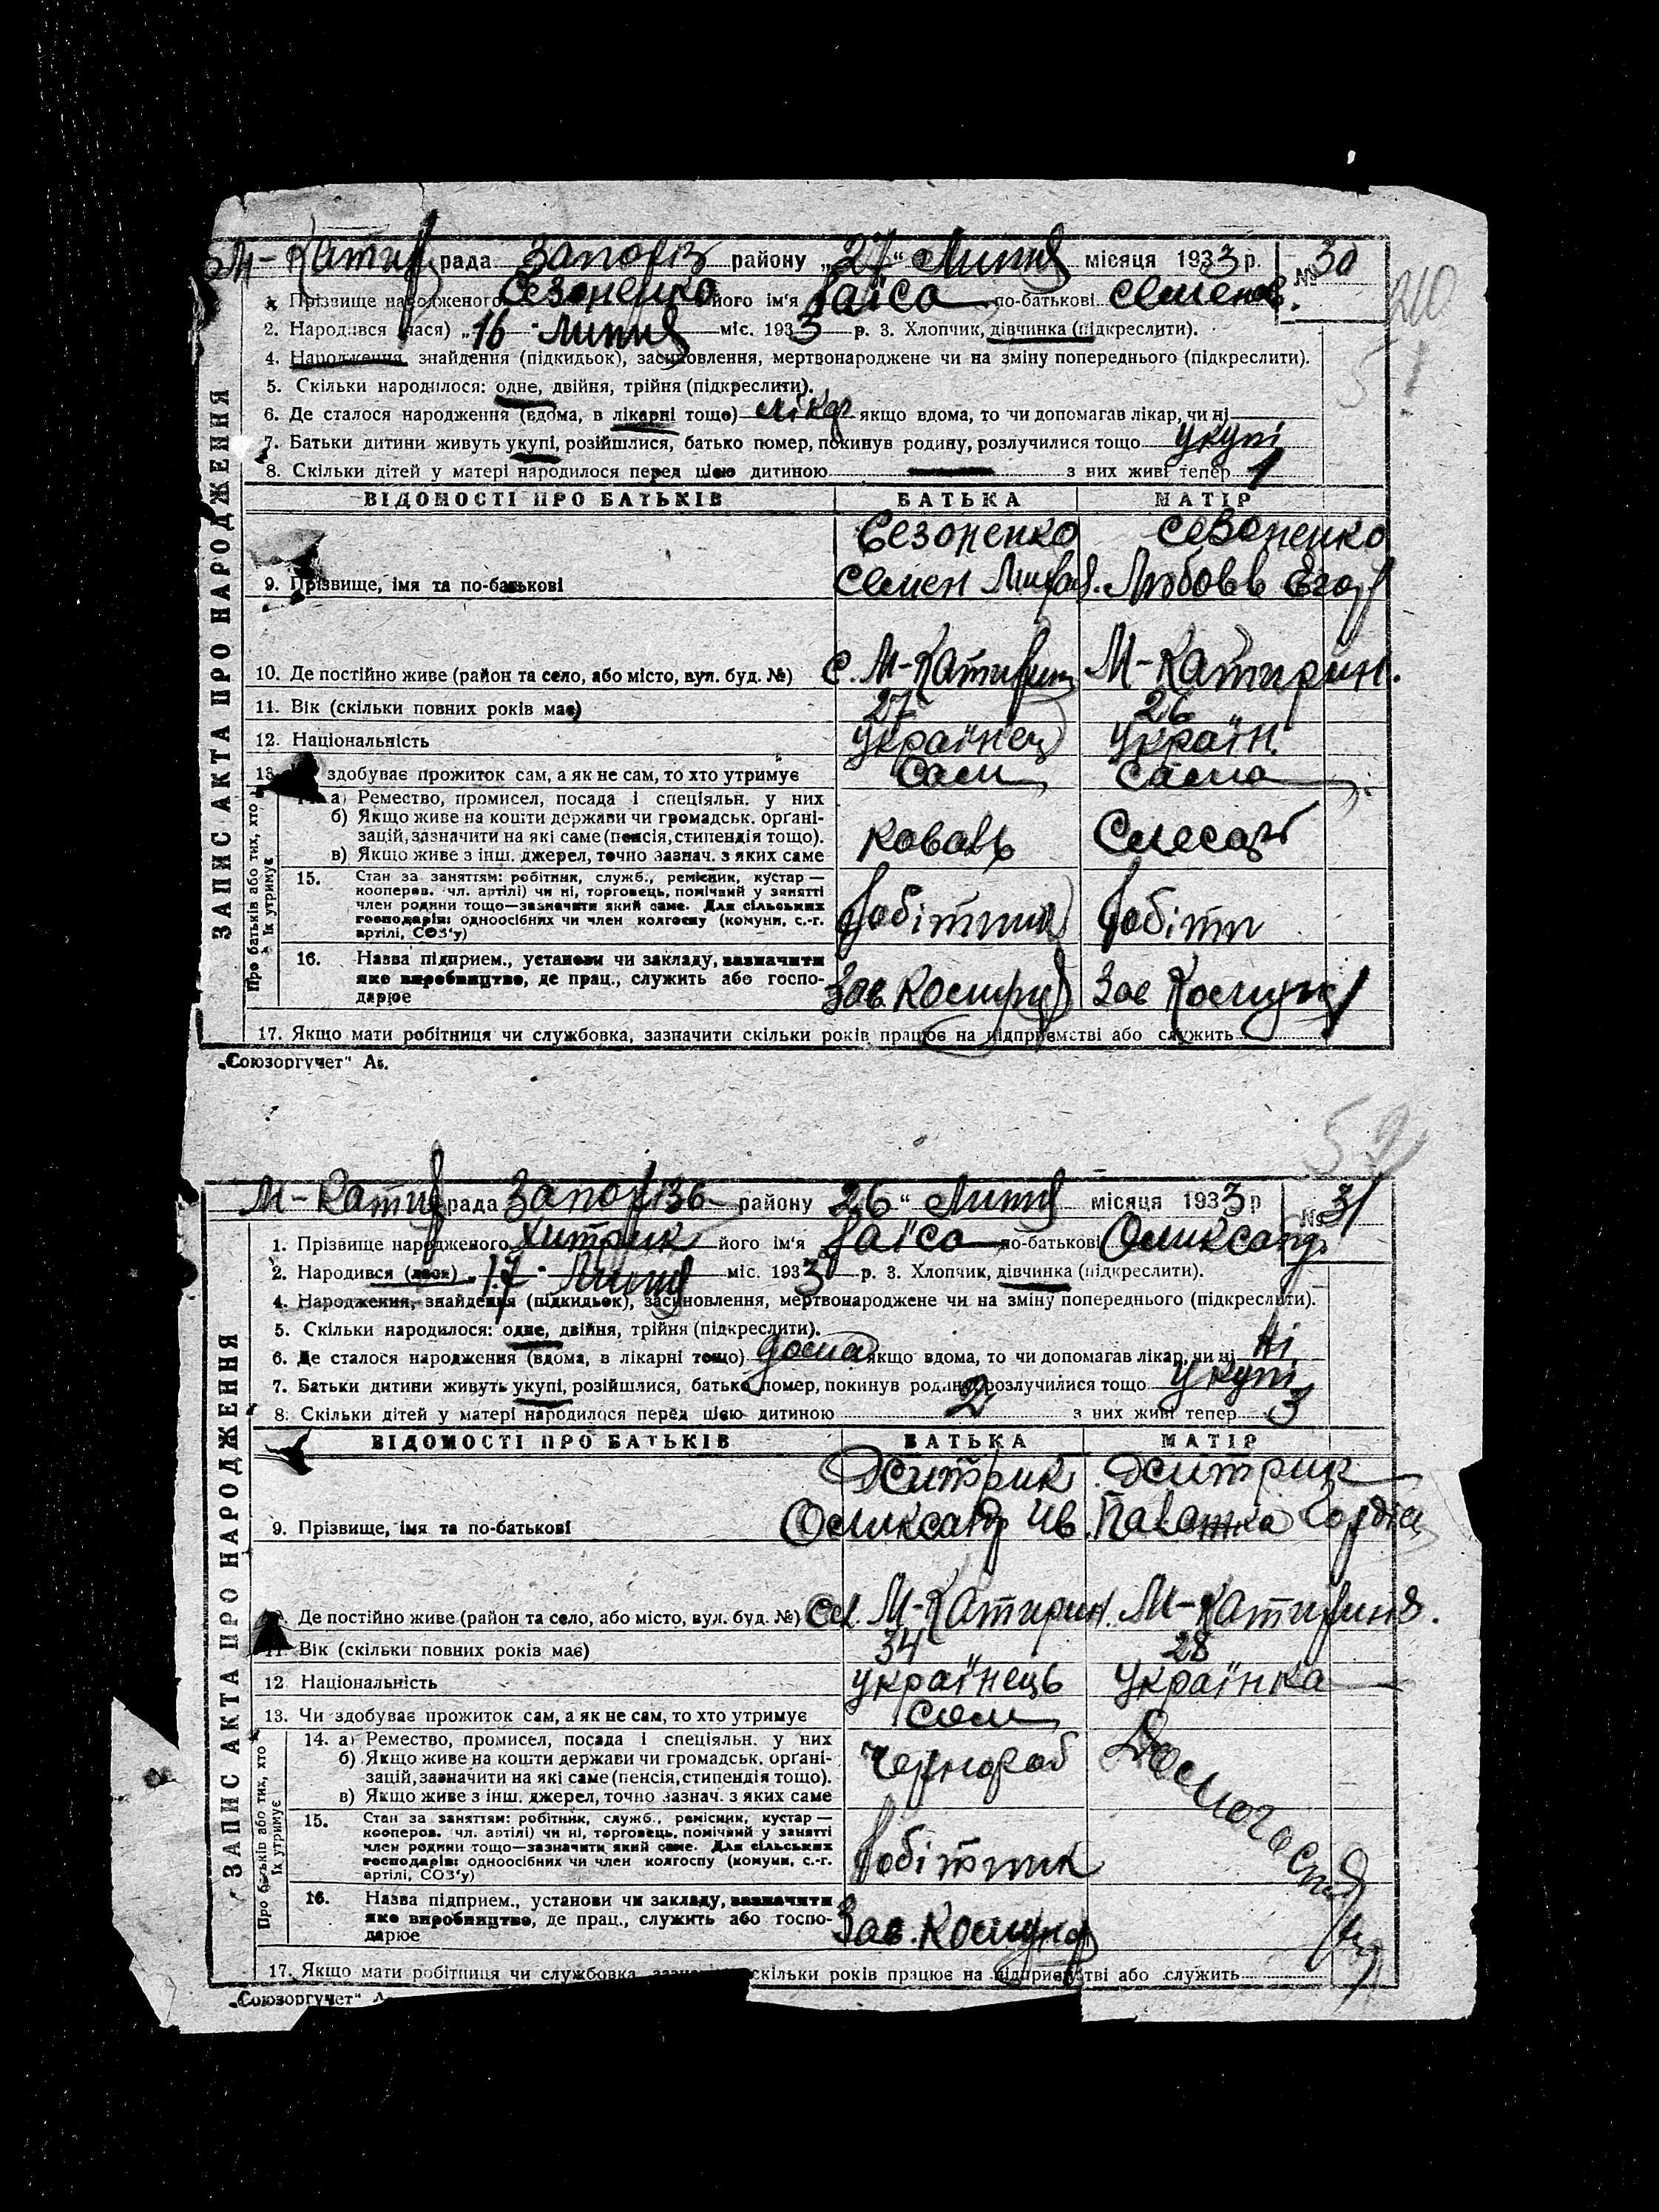 М-Катир рада Запоріз району „27“ Липня місяця 1933 р. № 30
1. Прізвище народженого Сезоненко його ім'я Раїса по-батькові Семенов.
210
2. Народився (лася) „16 “ Липня міс. 1933 р. 3. Хлопчик, дівчинка (підкреслити).
4. Народження, знайдення (підкидьок), засиновлення, мертвонароджене чи на зміну попереднього (підкреслити).
51
5. Скільки народилося: одне, двійня, трійня (підкреслити).
6. Де сталося народження (вдома, в лікарні тощо) лікар якщо вдома, то чи допомагав лікар, чи ні
7. Батьки дитини живуть укупі, розійшлися, батько помер, покинув родину, розлучилися тощо укупі
8. Скільки дітей у матері народилося перед цією дитиною — з них живі тепер 1
ЗАПИС АКТА ПРО НАРОДЖЕННЯ
ВІДОМОСТІ ПРО БАТЬКІВ БАТЬКА МАТІР
Сезоненко Сезоненко
9. Прізвище, імя та по-батькові Семен Любовь Егор
10. Де постійно живе (район та село, або місто, вул. буд. №) с. М-Катирин М-Катирин.
11. Вік (скільки повних років має) 27 26
12. Національність Українец Україн.
13. здобуває прожиток сам, а як не сам, то хто утримує Сам Сама
Про батьків або тих, хто їх утримує
а) Ремество, промисел, посада і спеціяльн. у них
б) Якщо живе на кошти держави чи громадськ. орґані-
зацій, зазначити на які саме (пенсія, стипендія тощо). Коваль
в) Якщо живе з інш. джерел, точно зазнач. з яких саме
15. Стан за заняттям: робітник, служб., ремісник, кустар —
кооперов. чл. артілі) чи ні, торговець, помічний у занятті
член родини тощо—зазначити який саме. Для сільських
господарів: одноосібних чи член колгоспу (комуни, с.-г.
артілі, СОЗ'у) Робітник Робітн
16. Назва підприєм., установи чи закладу, зазначити
яке виробництво, де прац., служить або госпо-
дарює Зав Комунар Зав Комунар
17. Якщо мати робітниця чи службовка, зазначити скільки років працює на підприємстві або служить
„Союзоргучет“ Ат.
52
М-Катир рада Запорізь району 26 “ Липня місяця 1933 р № 31
1. Прізвище народженого Хитрик його ім'я Раїса по-батькові Олександ.
2. Народився (лася) „17 “ Липня міс. 1933 р. 3. Хлопчик, дівчинка (підкреслити).
4. Народження, знайдення (підкидьок), засиновлення, мертвонароджене чи на зміну попереднього (підкреслити).
5. Скільки народилося: одне, двійня, трійня (підкреслити).
6. Де сталося народження (вдома, в лікарні тощо) дома якщо вдома, то чи допомагав лікар, чи ні Ні
7. Батьки дитини живуть укупі, розійшлися, батько помер, покинув родину, розлучилися тощо Укупі
8. Скільки дітей у матері народилося перед цією дитиною 2 з них живі тепер 3
ЗАПИС АКТА ПРО НАРОДЖЕННЯ
ВІДОМОСТІ ПРО БАТЬКІВ БАТЬКА МАТІР
Хитрик Хитрик
9. Прізвище, імя та по-батькові Олександ Ів. Палажка Гордіев
Де постійно живе (район та село, або місто, вул. буд. №) сел. М-Катирин. М-Катириня.
11. Вік (скільки повних років має) 34 28
12 Національність українець Українка
13. Чи здобуває прожиток сам, а як не сам, то хто утримує Сам
Про батьків або тих, хто їх утримує
14. а) Ремество, промисел, посада і спеціяльн. у них
б) Якщо живе на кошти держави чи громадськ. орґані-
зацій, зазначити на які саме (пенсія, стипендія тощо). Чернороб
в) Якщо живе з інш. джерел, точно зазнач. з яких саме
Домогоспод
15. Стан за заняттям: робітник, служб., ремісник, кустар —
кооперов. чл. артілі) чи ні, торговець, помічний у занятті
член родини тощо—зазначити який саме. Для сільських
господарів: одноосібних чи член колгоспу (комуни, с.-г.
артілі, СОЗ'у) Робітник
16. Назва підприєм., установи чи закладу, зазначити
яке виробництво, де прац., служить або госпо-
дарює Зав. Комунар
17. Якщо мати робітниця чи службовка скільки років працює на підприємстві або служить
„Союзоргучет“ А